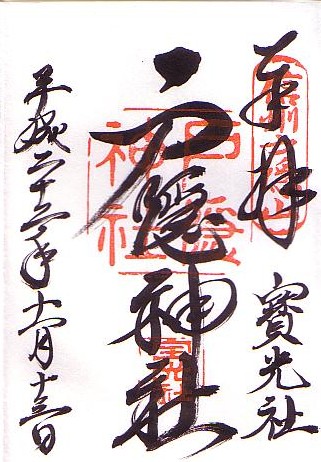 奉拝
寶光社
戸隠神社
平成二十三年十一月十三日
戸隠
神社
宝光社